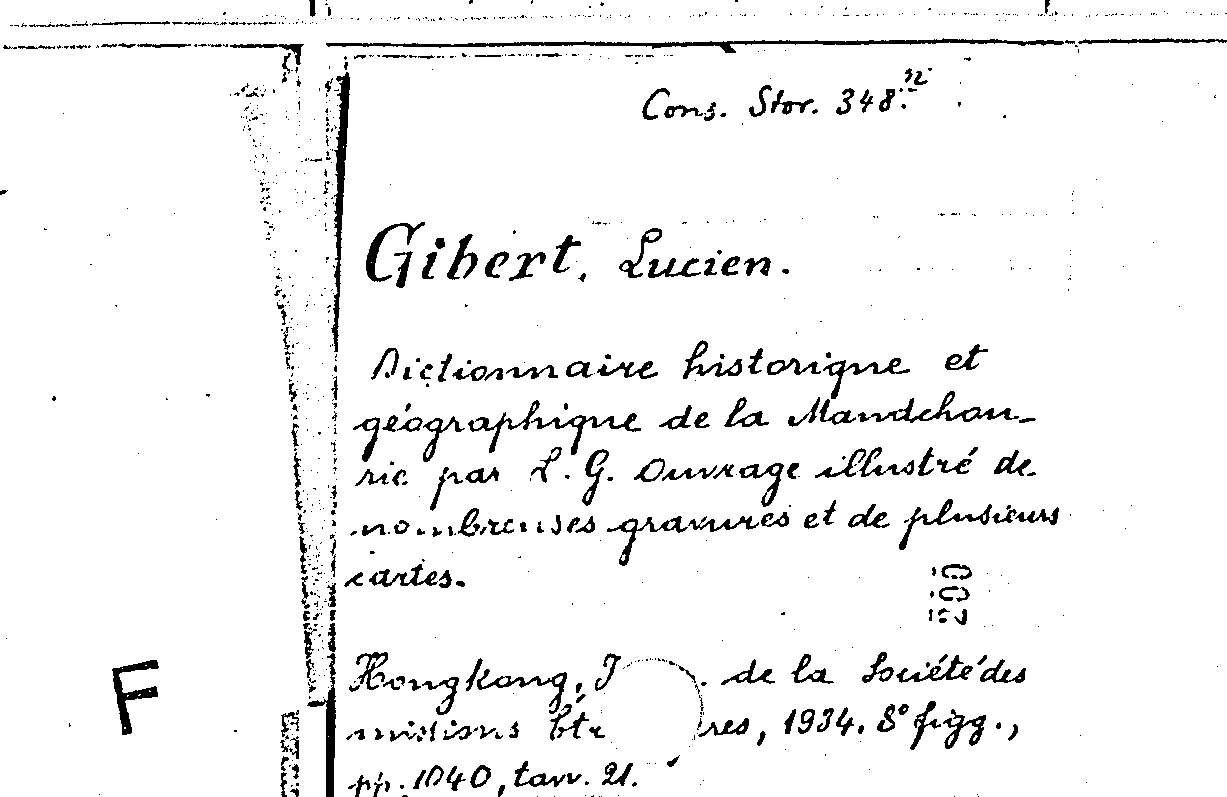 Cons. Stor. 348.
Gibert, Lucien.
Dictionnaire historique et
géographique de la Mandchou-
rie par L. G. Ouvrage illustré de
nombreuses gravures et de plusieurs
cartes.
200
Hongkong, de la Société des
missions 1934. 8° figg.,
pp. 1040, tav. 21.
F